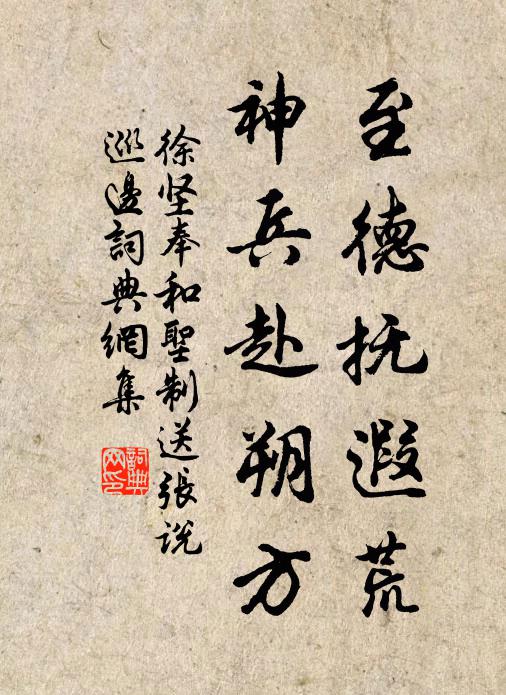 至德抚遐荒
神兵赴朔方
徐坚奉和聖制送張说
巡邊詞典網集
詞典网印